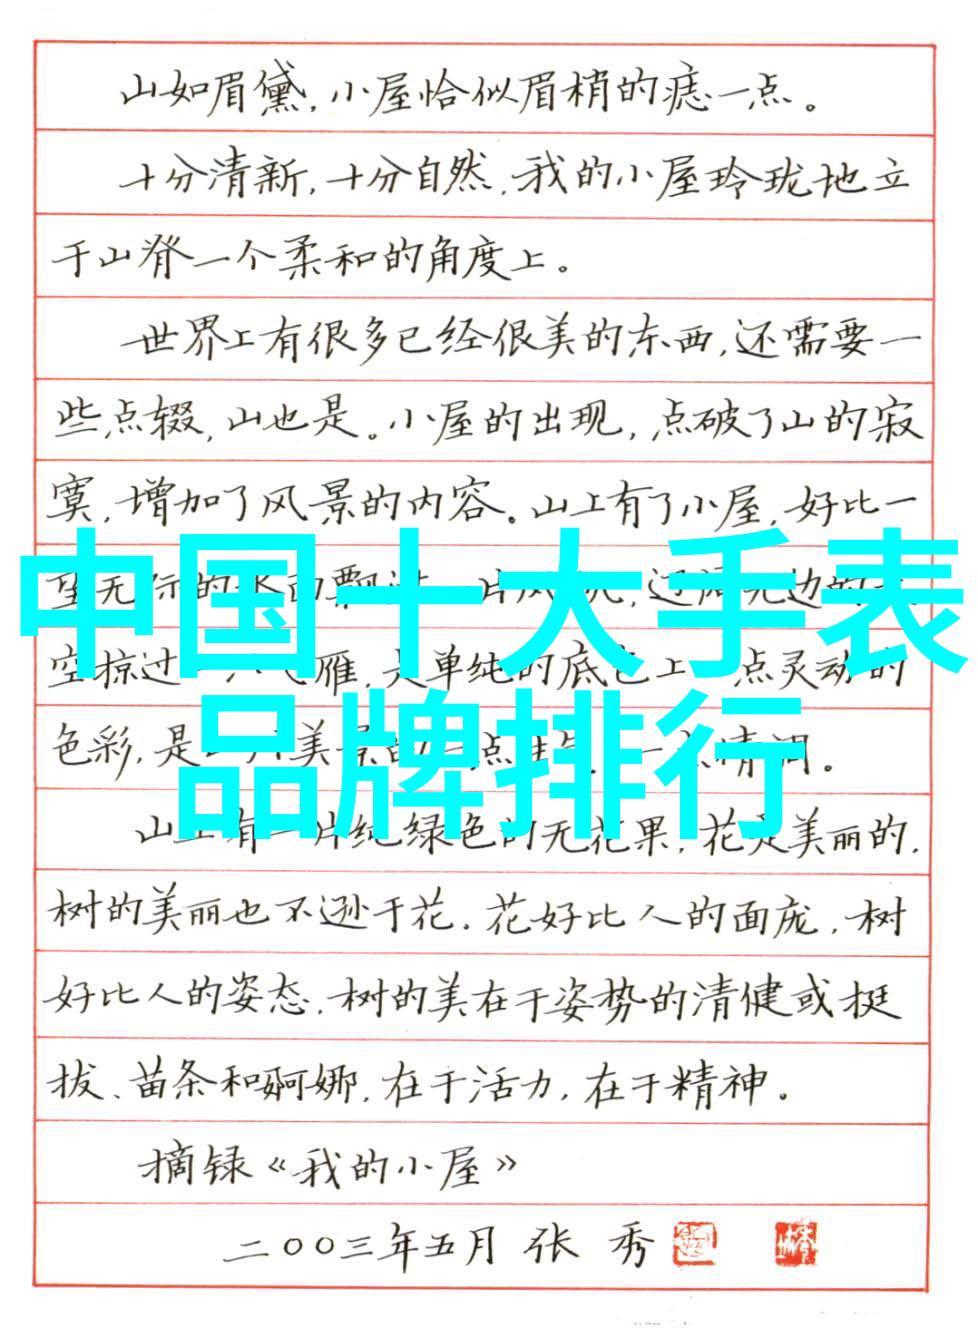 山如眉黛,小屋恰似眉梢的痣一点。
十分清新,十分自然,我的小屋玲珑地立
于山脊一个柔和的角度上。
世界上有很多已经很美的东西,还需要一
些点缀,山也是。小屋的出现,点破了山的寂
寞,增加了风景的内容。山上有了小屋,好比一
中国十大手表
品牌排行
空掠过 雁,是单纯的底色上 点灵动的
色彩,是 美景 点
山上有一片纯绿色的无花果,花是美丽的,
树的美丽也不逊于花。花好比人的面庞,树
好比人的姿态。树的美在于姿势的清健或挺
拔、苗条和婀娜,在于活力,在于精神。
摘录《我的小屋》
二〇〇三年五月 张 秀